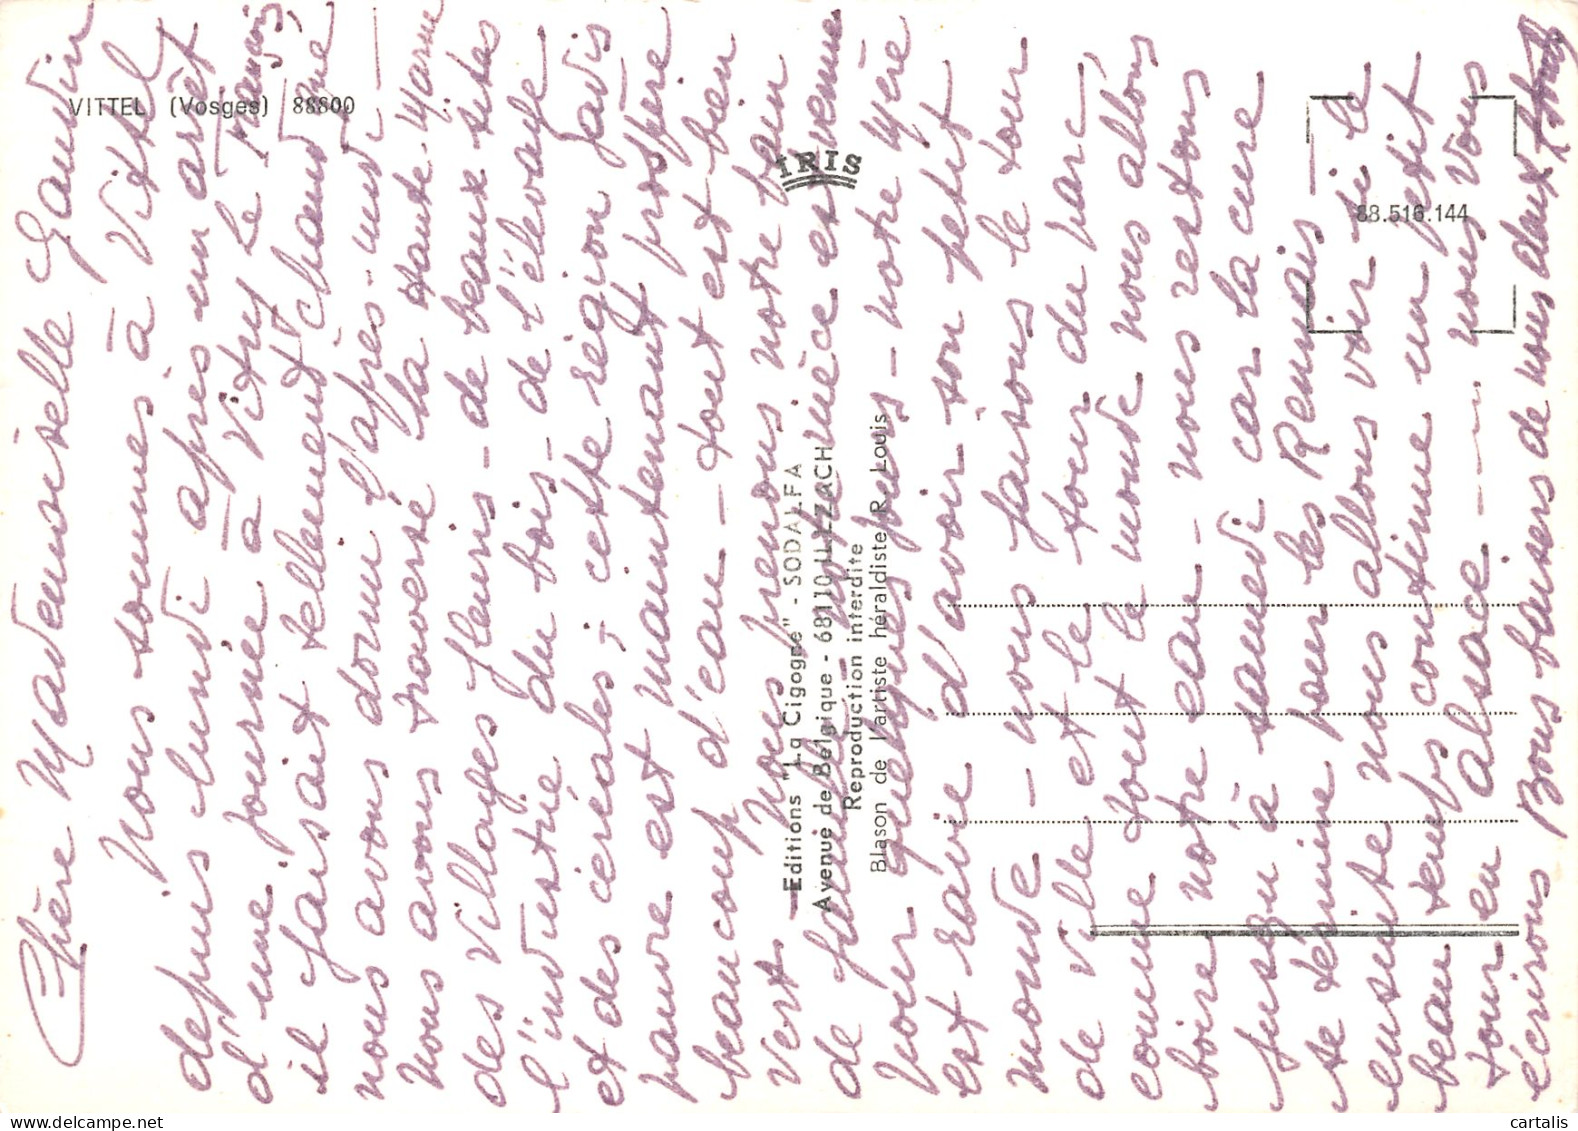 VITTEL (Vosges) 88800
IRIS
88.516.144
Editions "La Cigogne" - SODALFA
Avenue de Belgique - 68110 ILLZACH
Reproduction interdite
Blason de l'artiste héraldiste R. Louis
Chère Mademoiselle Gaudin
Nous sommes à Vittel
depuis lundi après un arrêt
d'une journée à Vitry le
il faisait tellement chaud que
nous avons dormi l'après-midi -
Nous avons traversé la Haute-Marne
des villages fleuris - de beaux sites
l'industrie du bois - de l'élevage
et des céréales ; cette région jadis
pauvre est maintenant prospère
beaucoup d'eau - tout est bien
vert - Nous prenons notre bain
de foule - la première est venue
pour quelques jours - notre Mère
est ravie d'avoir son petit
monde - nous faisons le tour
de ville et le tour du parc
comme tout le monde nous allons
boire notre eau - nous restons
jusqu'à samedi car la cure
se termine pour les Rennais
ensuite nous allons voir si le
beau temps continue un petit
tour en Alsace - nous vous
écrirons Bons baisers de nous deux